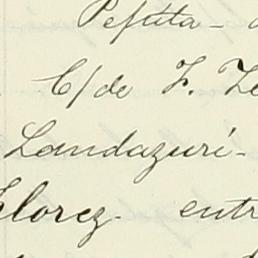 Peptita -
C/de F. Ze
Landazuri -
Florez. entr